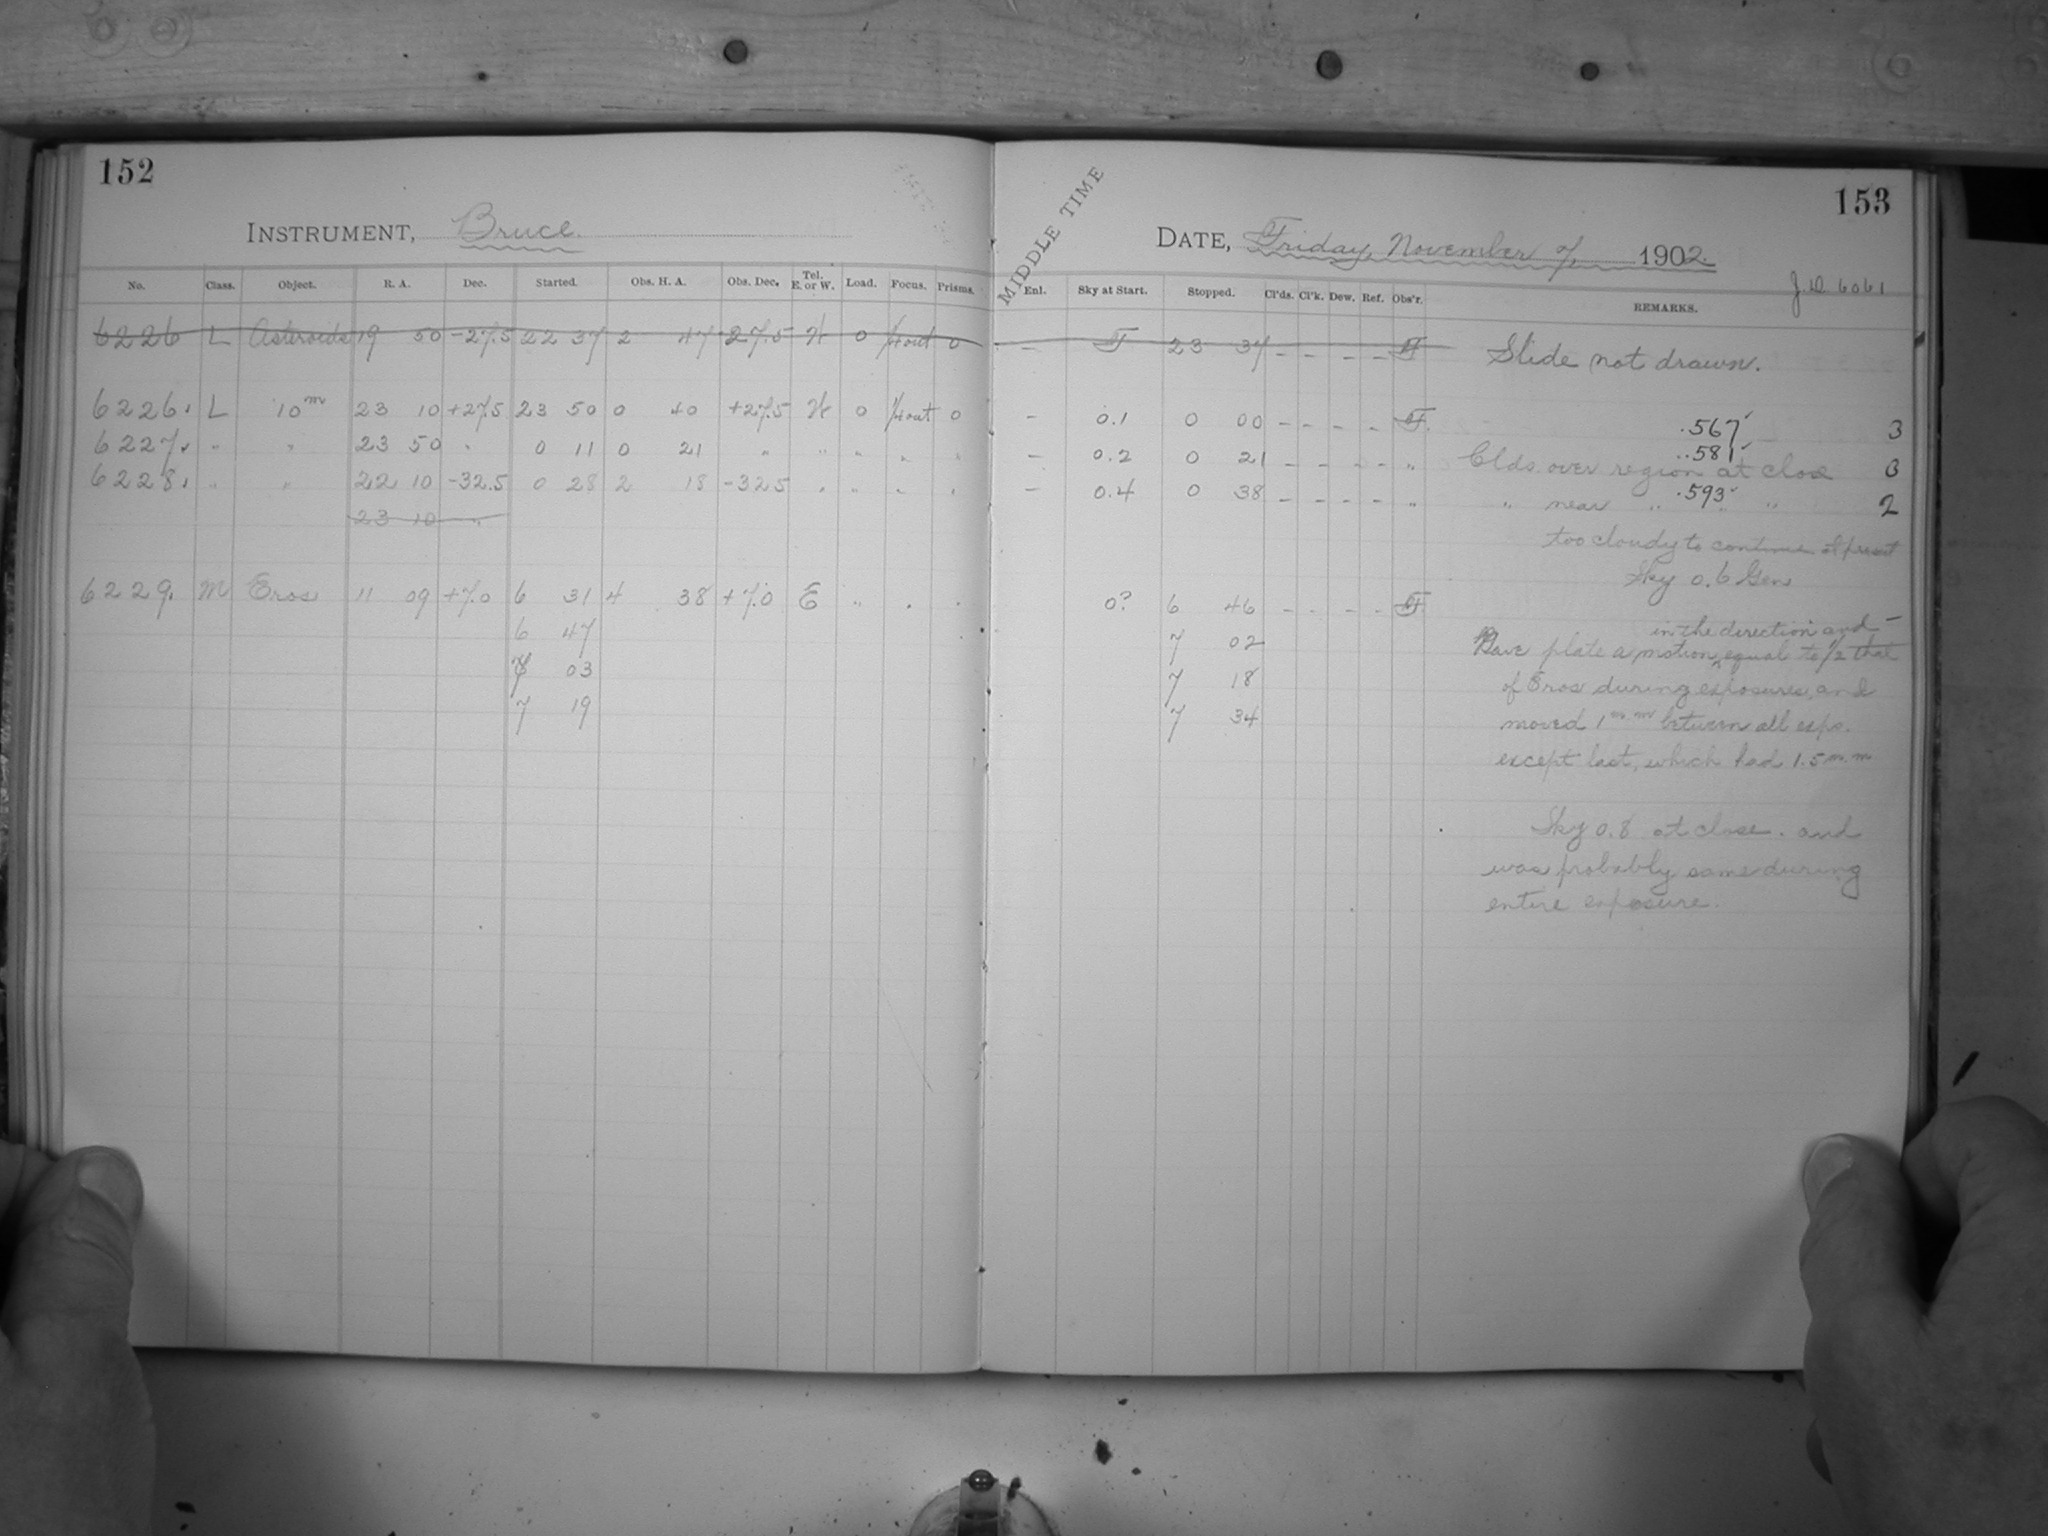 152
INSTRUMENT, Bruce.
No. Class. Object. R. A. Dec. Started. Obs. H. A. Obs. Dec. Tel. E. or W. Load. Focus. Prisms.
6226 L Asteroids 19 50 -27.5 22 37 2 47 -27.5 W 0 out 0
6226. L 10m 23 10 +27.5 23 50 0 40 +27.5 W 0 out 0
6227. " " 23 50 " 0 11 0 21 " " " " "
6228. " " 22 10 -32.5 0 28 2 18 -32.5 " " " "
23 10 "
6229. M Eros 11 09 +7.0 6 31 4 38 +7.0 E " " "
6 47
7 03
7 19
153
MIDDLE TIME
DATE, Friday, November 7, 1902.
J.D. 6061
Enl. Sky at Start. Stopped. Cl'ds. Cl'k. Dew. Ref. Obs'r. REMARKS.
- F 23 37 - - - - F Slide not drawn.
- 0.1 0 00 - - - - F. .567 3
- 0.2 0 21 - - - - " .581 Clds. over region at close 3
- 0.4 0 38 - - - - " " near " .593 " " 2
too cloudy to continue at present
Sky 0.6 Gen
0? 6 46 - - - - F.
7 02
7 18
7 34
in the direction and
Gave plate a motion equal to 1/2 that
of Eros during exposures, and
moved 1 mm between all exps.
except last, which had 1.5 m.m
Sky 0.8 at close. and
was probably same during
entire exposure.